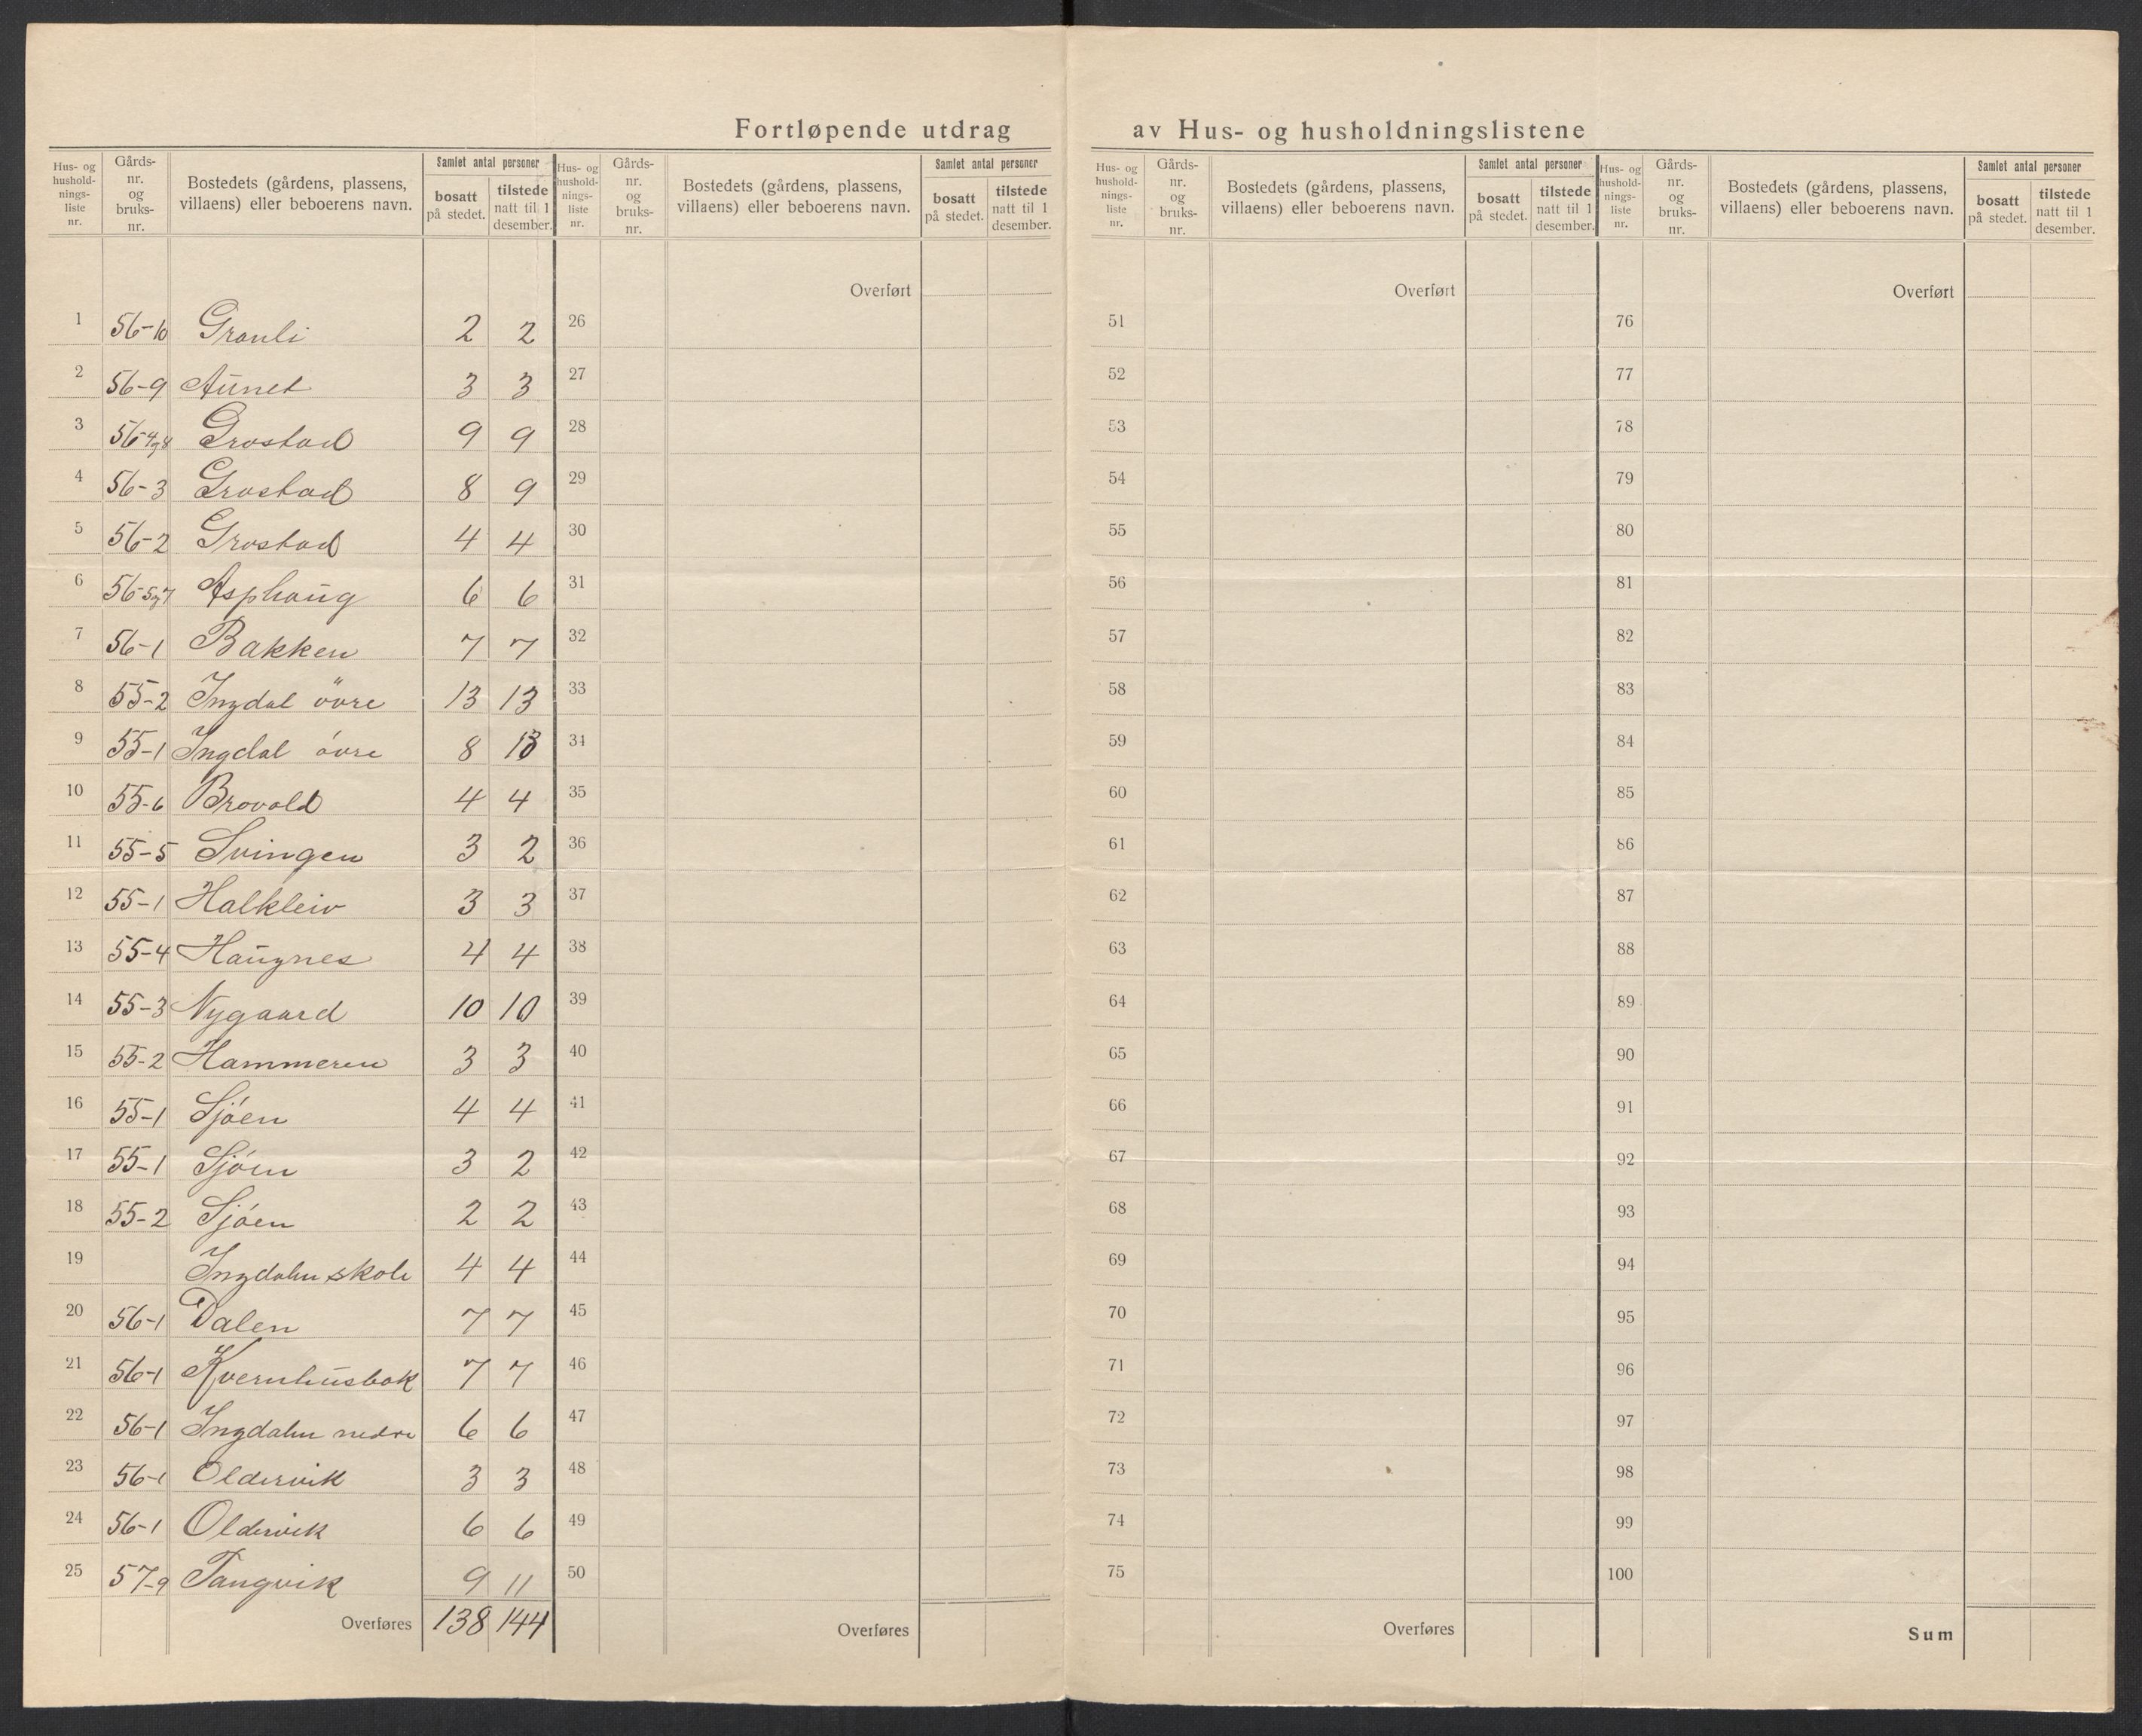 Fortløpende utdrag av Hus- og husholdningslistene
Hus- og husholdnings-liste nr. Gårds-nr. og bruks-nr. Bostedets (gårdens, plassens, villaens) eller beboerens navn. Samlet antal personer bosatt på stedet. tilstede natt til 1 desember.
Hus- og husholdnings-liste nr. Gårds-nr. og bruks-nr. Bostedets (gårdens, plassens, villaens) eller beboerens navn. Samlet antal personer bosatt på stedet. tilstede natt til 1 desember.
Hus- og husholdnings-liste nr. Gårds-nr. og bruks-nr. Bostedets (gårdens, plassens, villaens) eller beboerens navn. Samlet antal personer bosatt på stedet. tilstede natt til 1 desember.
Hus- og husholdnings-liste nr. Gårds-nr. og bruks-nr. Bostedets (gårdens, plassens, villaens) eller beboerens navn. Samlet antal personer bosatt på stedet. tilstede natt til 1 desember.
Overført Overført Overført
1 56-10 Granli 2 2 26 51 76
2 56-9 Aunet 3 3 27 52 77
3 56-4og8 Grostad 9 9 28 53 78
4 56-3 Grostad 8 9 29 54 79
5 56-2 Grostad 4 4 30 55 80
6 56-5og7 Asphaug 6 6 31 56 81
7 56-1 Bakken 7 7 32 57 82
8 55-2 Ingdal övre 13 13 33 58 83
9 55-1 Ingdal óvre 8 13 34 59 84
10 55-6 Brovold 4 4 35 60 85
11 55-5 Svingen 3 2 36 61 86
12 55-1 Halkleiv 3 3 37 62 87
13 55-4 Haugnes 4 4 38 63 88
14 55-3 Nygaard 10 10 39 64 89
15 55-2 Hammeren 3 3 40 65 90
16 55-1 Sjóen 4 4 41 66 91
17 55-1 Sjóen 3 2 42 67 92
18 55-2 Sjóen 2 2 43 68 93
19 Ingdalen skole 4 4 44 69 94
20 56-1 Dalen 7 7 45 70 95
21 56-1 Kvernhusbak 7 7 46 71 96
22 56-1 Ingdalen nedre 6 6 47 72 97
23 56-1 Oldervik 3 3 48 73 98
24 56-1 Oldervik 6 6 49 74 99
25 57-9 Tangvik 9 11 50 75 100
Overføres 138 144 Overføres Overføres Sum